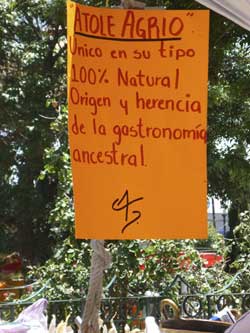 "ATOLE AGRIO"
Unico en su tipo
100% Natural
Origen y herencia
de la gastronomía
ancestral.